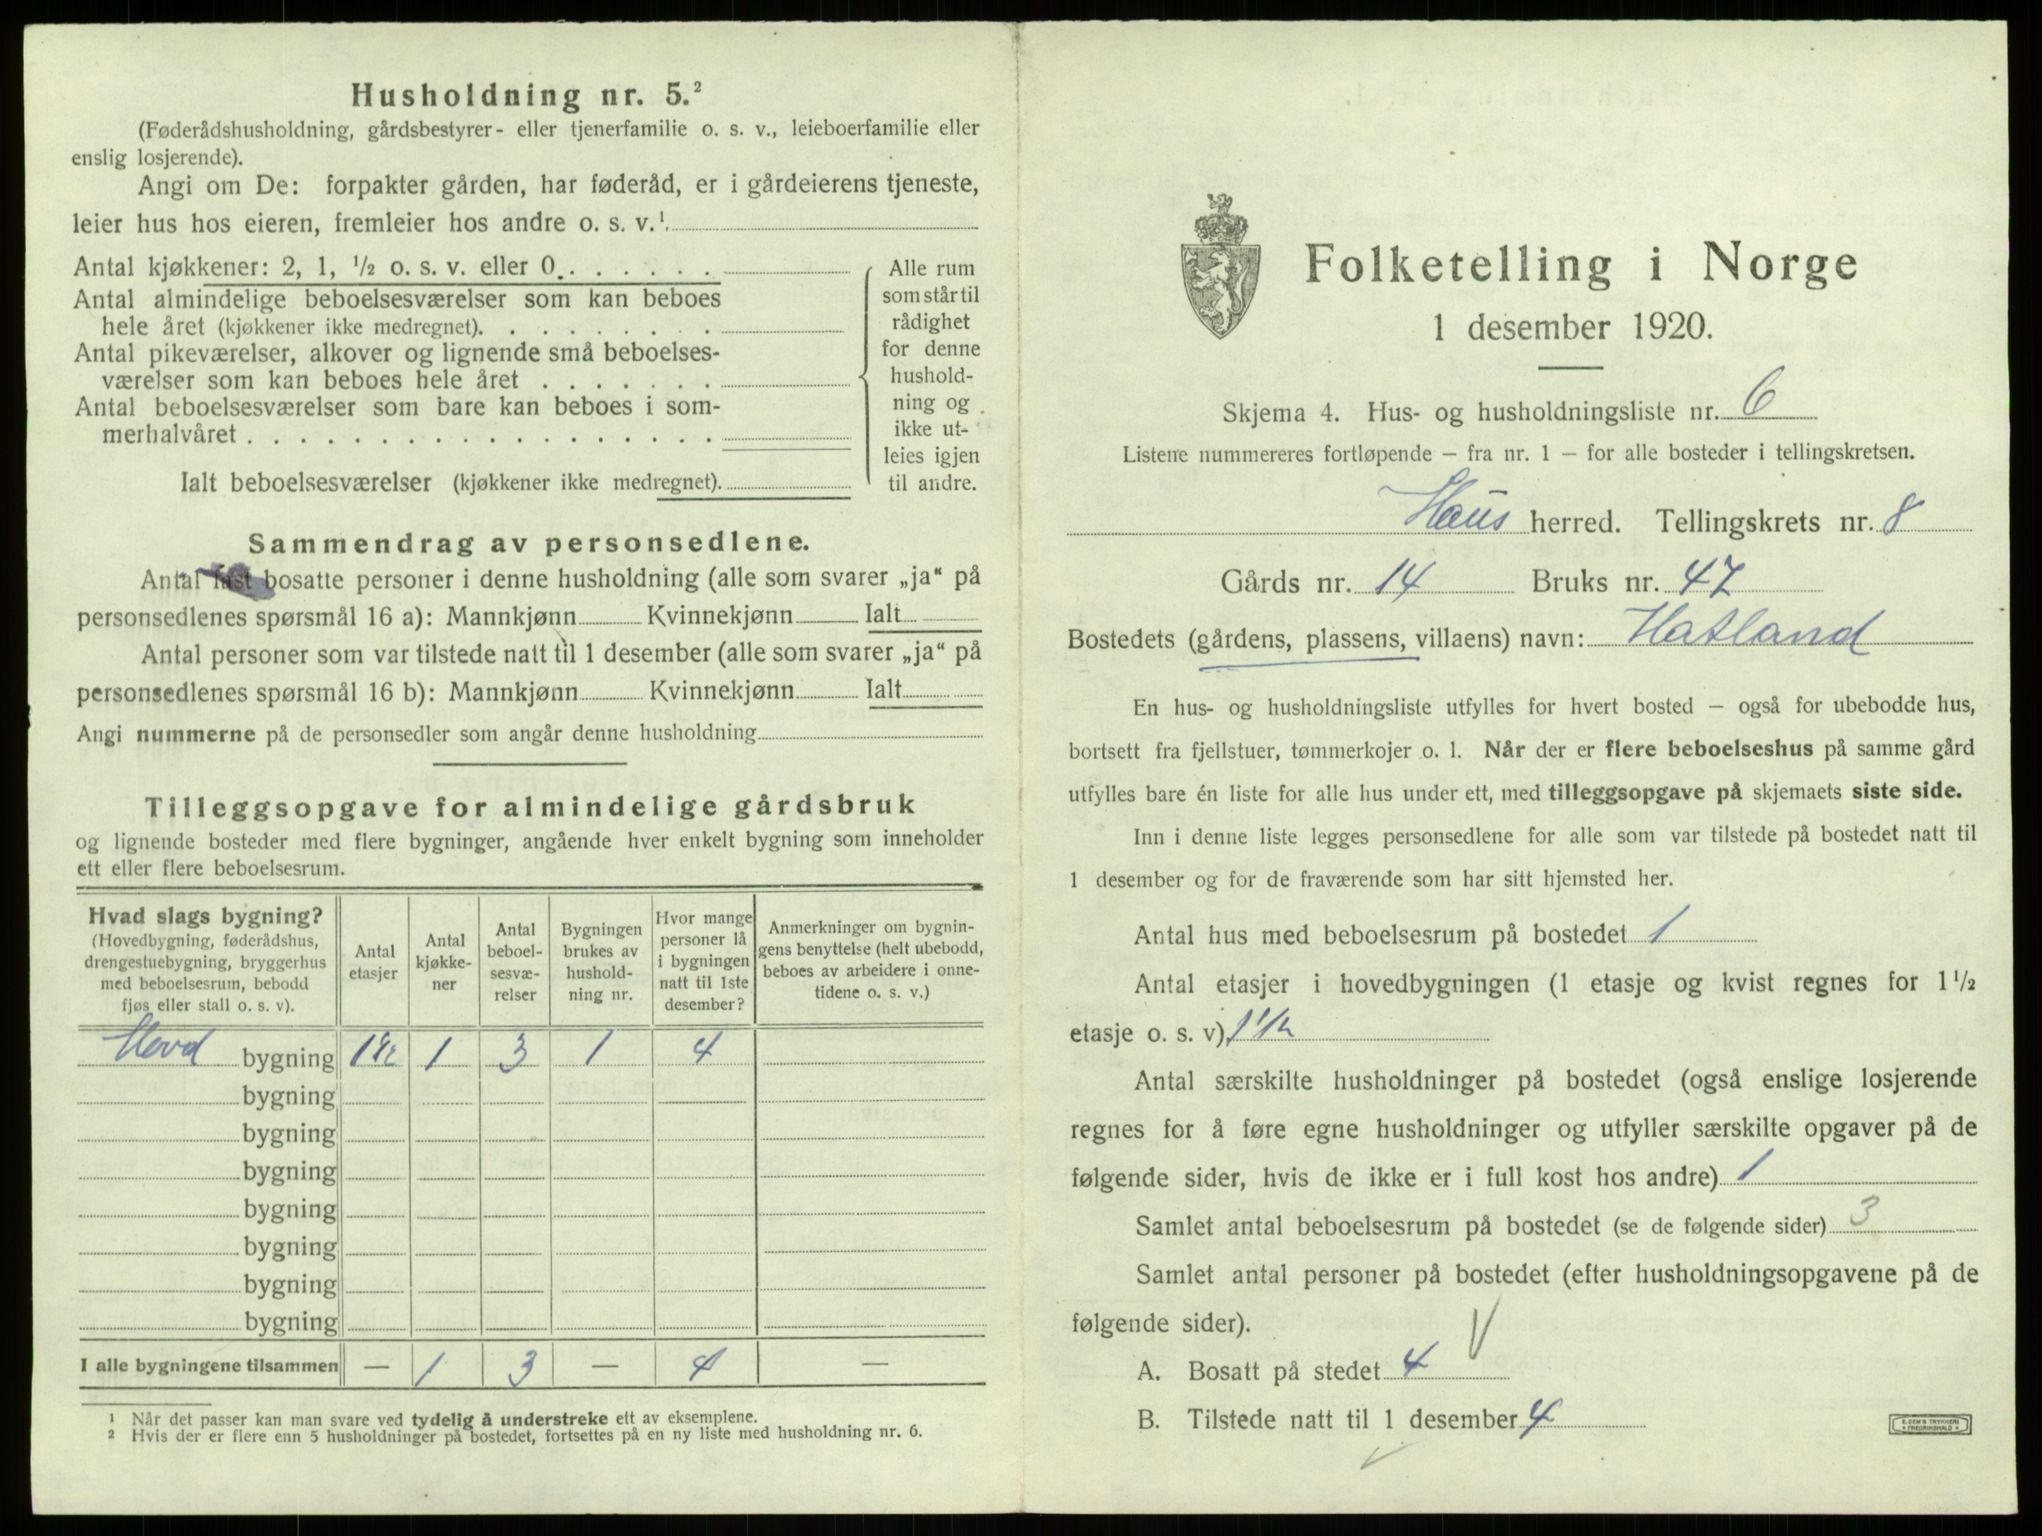 Husholdning nr. 5.²
(Føderådshusholdning, gårdsbestyrer- eller tjenerfamilie o. s. v., leieboerfamilie eller
enslig losjerende).
Angi om De: forpakter gården, har føderåd, er i gårdeierens tjeneste,
leier hus hos eieren, fremleier hos andre o. s. v.¹.
Antal kjøkkener: 2, 1, ½ o. s. v. eller 0
Antal almindelige beboelsesværelser som kan beboes
hele året (kjøkkener ikke medregnet).
Antal pikeværelser, alkover og lignende små beboelses-
værelser som kan beboes hele året
Antal beboelsesværelser som bare kan beboes i som-
merhalvåret
Ialt beboelsesværelser (kjøkkener ikke medregnet).
Alle rum
som står til
rådighet
for denne
hushold-
ning og
ikke ut-
leies igjen
til andre.
Sammendrag av personsedlene.
Antal fast bosatte personer i denne husholdning (alle som svarer „ja“ på
personsedlenes spørsmål 16 a): Mannkjønn Kvinnekjønn Ialt
Antal personer som var tilstede natt til 1 desember (alle som svarer „ja“ på
personsedlenes spørsmål 16 b): Mannkjønn Kvinnekjønn Ialt
Angi nummerne på de personsedler som angår denne husholdning
Tilleggsopgave for almindelige gårdsbruk
og lignende bosteder med flere bygninger, angående hver enkelt bygning som inneholder
ett eller flere beboelsesrum.
Hvad slags bygning?
(Hovedbygning, føderådshus,
drengestuebygning, bryggerhus
med beboelsesrum, bebodd
fjøs eller stall o. s. v).
Antal
etasjer
Antal
kjøkke-
ner
Antal
beboel-
sesvæ-
relser
Bygningen
brukes av
hushold-
ning nr.
Hvor mange
personer lå
i bygningen
natt til 1ste
desember?
Anmerkninger om bygnin-
gens benyttelse (helt ubebodd,
beboes av arbeidere i onne-
tidene o. s. v.)
Hovd bygning 1½ 1 3 1 4
bygning
bygning
bygning
bygning
bygning
bygning
bygning
I alle bygningene tilsammen — 1 3 — 4 —
¹ Når det passer kan man svare ved tydelig å understreke ett av eksemplene.
² Hvis der er flere enn 5 husholdninger på bostedet, fortsettes på en ny liste med husholdning nr. 6.
Folketelling i Norge
1 desember 1920.
Skjema 4. Hus- og husholdningsliste nr. 6
Listene nummereres fortløpende — fra nr. 1 — for alle bosteder i tellingskretsen.
Haus herred. Tellingskrets nr. 8
Gårds nr. 14 Bruks nr. 47
Bostedets (gårdens, plassens, villaens) navn: Hatland
En hus- og husholdningsliste utfylles for hvert bosted — også for ubebodde hus,
bortsett fra fjellstuer, tømmerkojer o. l. Når der er flere beboelseshus på samme gård
utfylles bare én liste for alle hus under ett, med tilleggsopgave på skjemaets siste side.
Inn i denne liste legges personsedlene for alle som var tilstede på bostedet natt til
1 desember og for de fraværende som har sitt hjemsted her.
Antal hus med beboelsesrum på bostedet 1
Antal etasjer i hovedbygningen (1 etasje og kvist regnes for 1½
etasje o. s. v) 1½
Antal særskilte husholdninger på bostedet (også enslige losjerende
regnes for å føre egne husholdninger og utfyller særskilte opgaver på de
følgende sider, hvis de ikke er i full kost hos andre) 1
Samlet antal beboelsesrum på bostedet (se de følgende sider) 3
Samlet antal personer på bostedet (efter husholdningsopgavene på de
følgende sider).
A. Bosatt på stedet 4
B. Tilstede natt til 1 desember 4